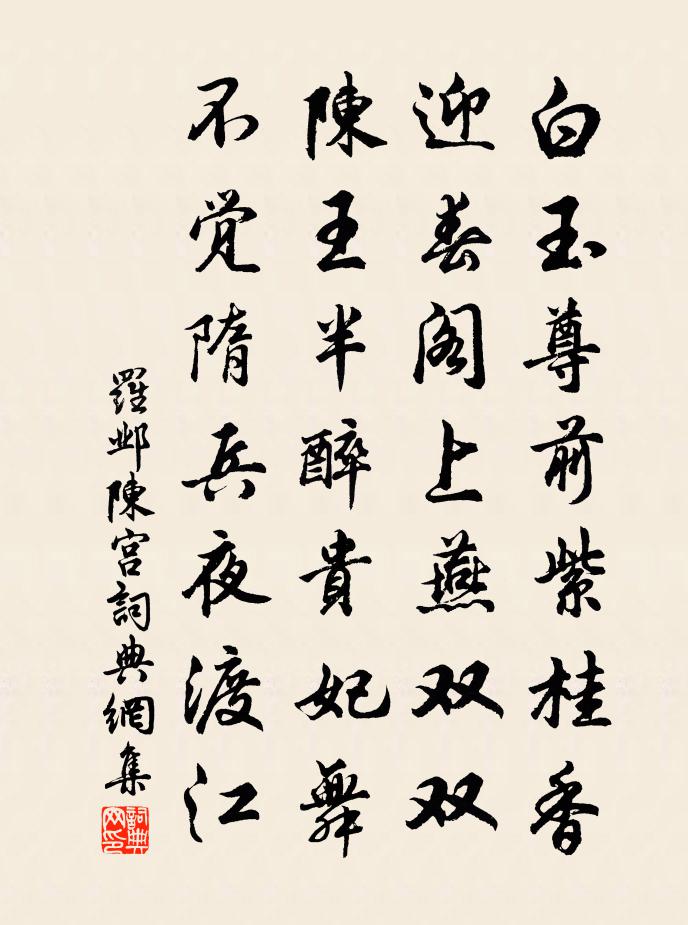 白玉尊前紫桂香
迎春阁上燕双双
陳王半醉貴妃舞
不觉隋兵夜渡江
羅邺陳宫詞典網集
詞典網印